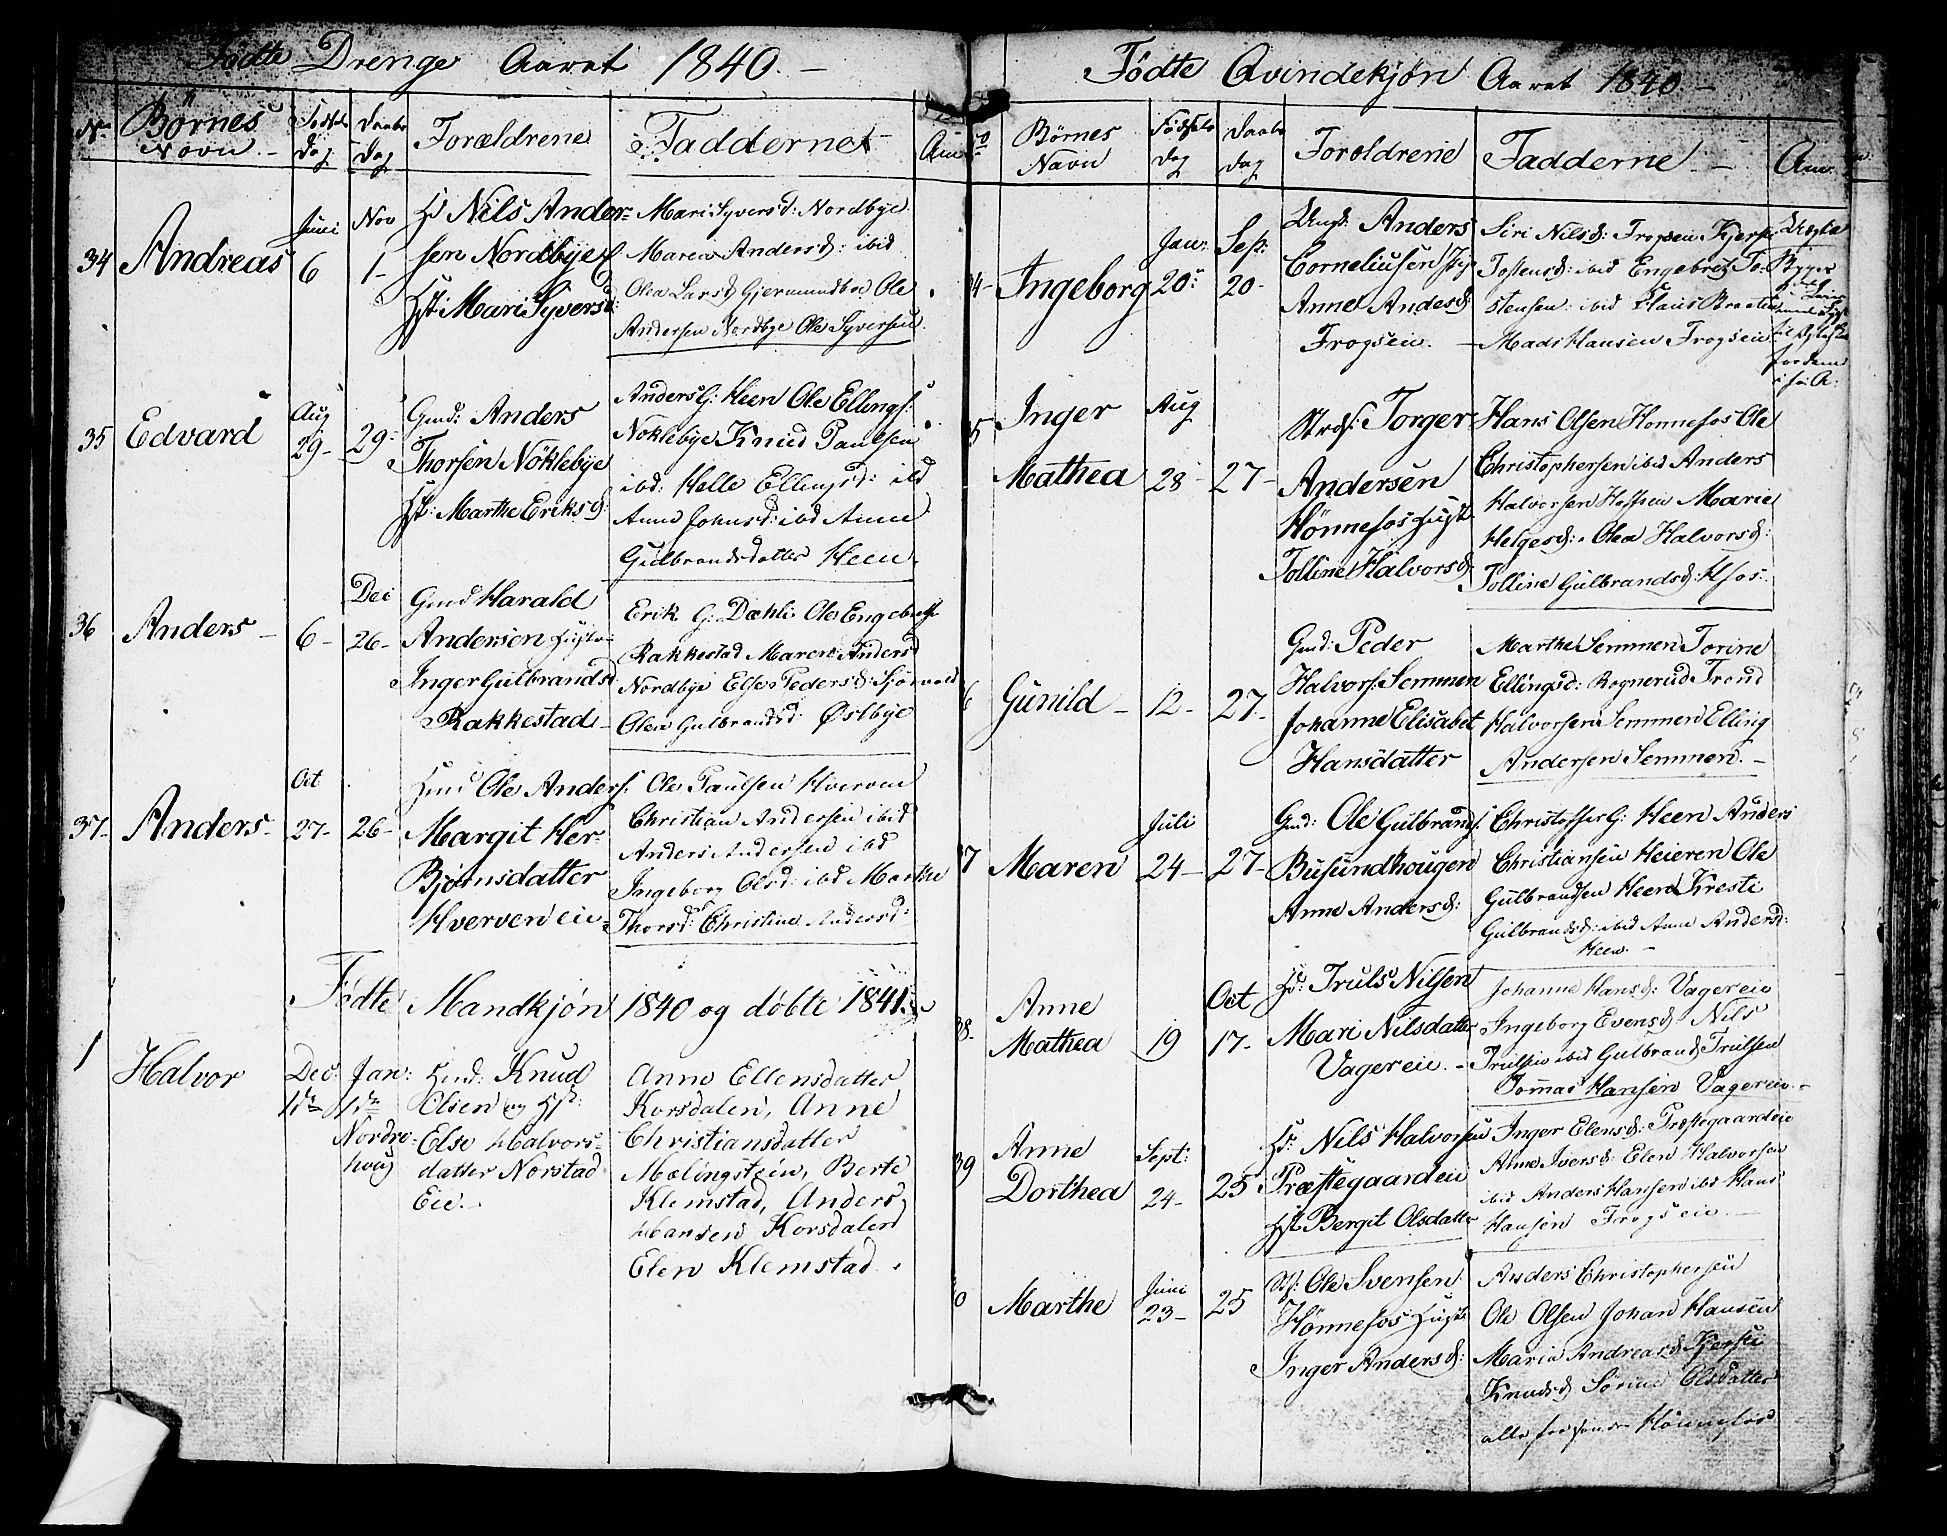 Födte Drenge Aaret 1840. –
No
Börnes
Navn. –
Födsels
Dag
Daabs
Dag
Forældrene
Fadderne
Anm
34
Andreas
Juni
6
Nov
1-
Hd Nils Ander=
sen Nordbye
Hst: Mari Syversd:
Mari Syversd: Nordbye
Maren Andersd: ibid
Olea Larsd Gjermundboe Ole
Andersen Nordbye Ole Syversen.
35
Edvard
Aug
29-
29-
Gmd: Anders
Thorsen Nöklebye
Hst: Marthe Eriksd:
Anders G: Heen Ole Ellings:
Nöklebye Knud Paulsen
ibd: Helle Ellingsd: ibd
Anne Johnsd: ibd Anne
Gulbrandsdatter Heen.
36
Anders –
6-
Dec
26-
Gmd Harald
Andersen Hustr
Inger Gulbrandsd
Rakkestad –
Erik G: Dæhli Ole Engebretss
Rakkestad Maren Andersd
Nordbye Else Pedersd: Sjørvold
Olea Gulbrandsd: Østbye
37-
Anders-
Oct
27-
26-
Hmd Ole Anders:
Margit Her-
Björnsdatter
Hverven eie-
Ole Paulsen Hverven
Christian Andersen ibid
Anders Andersen ibd
Ingeborg Olsd: ibd Marthe
Thorsd: Christine Andersd:
Födte Mandkjön 1840 og döbte 1841.
1
Halvor
Dec:
1ste
Jan:
1ste
Nordro-
houg
Hmd: Knud
Olsen og Hst:
Else Halvors-
datter Norstad
Eie.
Anne Ellensdatter
Korsdalen, Anne
Christiansdatter
Mælingstein, Berte
Klemstad, Anders
Hansen Korsdalen
Elen Klemstad.
Födte Qvindekjön Aaret 1840. –
No
Börnes
Navn
Födsels
Dag
Daabs
Dag
Foroldrene
Fadderne. –
Anm.
4-
Ingeborg
Janr:
20-
Sep:
20-
Ungk: Anders
Corneliusen
Anne Andersd:
Frogseie.
Siri Nilsd: Frogseie Kjersti
Tostensd: ibid Engebret To-
stensen: ibid Hans Braaten
Mads Hansen Frogseie
Uægte
5
Inger
Mathea
Aug
28
27-
Strds: Torger
Andersen
Hönnefos Hust
Tolline Halvorsd
Hans Olsen Honnefos Ole
Christophersen ibid Anders
Halvorsen Marie
Helgesd: Olea Halvorsd:
Tolline Gulbrandsd: Hfos:
6
Gunild –
12-
27-
Gmd: Peder
Halvors: Semmen
Johanne Elisabet
Hansdatter
Marthe Semmen Torine
Ellingsd: Rognerud Trond
Halvorsen Semmen Elling
Andersen Semmen. –
37
Maren
Juli
24-
27-
Gmd: Ole Gulbrands:
Busundhougen
Anne Andersd:
Christoffer G: Heen Anders
Christiansen Heieren Ole
Gulbrandsen Heen Kresti
Gulbrandsd: ibid Anne Andersd:
Heen. –
38-
Anne
Mathea
19
Oct
17-
Hd: Truls Nilsen
Mari Nilsdatter
Vagereie. –
Johanne Hansd: Vagereie
Ingeborg Evensd Nils
Trulsen ibid Gulbrand Trulsen
Tommas Hansen Vagereie. –
39
Anne
Dorthea
Sept:
24-
25
Hd: Nils Halvorsen
Præstegaardeie
Hst Bergit Olsdatter
Inger Elensd: Præstegaardeie
Anne Iversd: Elen Halvorsen
ibid Anders Hansen ibd Hans
Hansen Frogseie. –
0
Marthe
Juni
23-
25
Ole Svensen
Hönnefos Hust
Inger Andersd:
Anders Christophersen
Ole Olsen Johan Hansen
Maria Andreasd Kjersti
Knudsd Sörine Olsdatter
alle Hönnefos